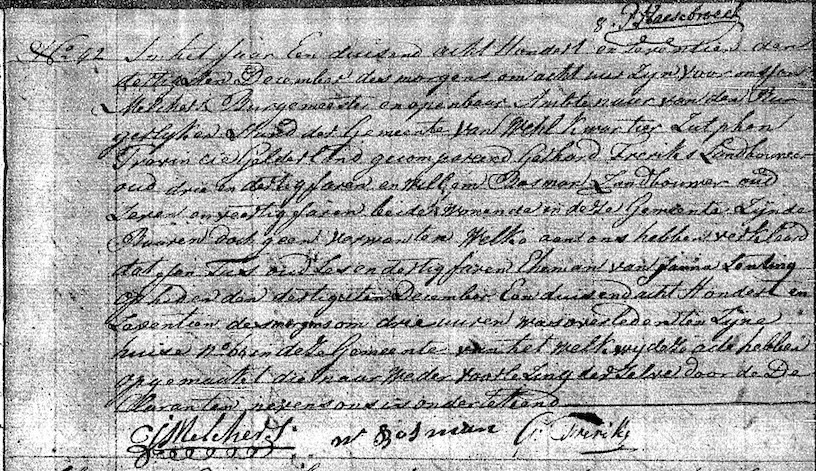 8. P. Haesebroeck
No. 42 In het Jaar Een duisend acht Hondert en Zeventien den
dertigsten December des morgens om acht uur Zyn voor ons Jan
Melchert Burgemeester en openbaar Ambtenaar van den Bur
gerlyken Stand der Gemeente van Wehl kwartier Zutphen
Provincie Gelderland gecompareerd Gerhard Freriks Landbouwer
oud drie en dertig Jaren en Willem Bosman Landbouwer oud
Zeven en veertig Jaren beide womende in deze Gemeente Zynde
Buuren doch geen verwanten Welke aan ons hebben verklaard
dat Jan oud Ses en dertig Jaren Eheman van Janna Lensing
op heden den dertigsten December Een duisend acht Hondert en
Zeventien des morgens om drie uuren was overleden ten Zyne
huise No. in deze Gemeente van het welk wy deze acte hebben
opgemaakt die naar Weder voorleZing derZelve door de De
klaranten nevens ons is onderteekend
J Melchert W Bosman G. Freriks